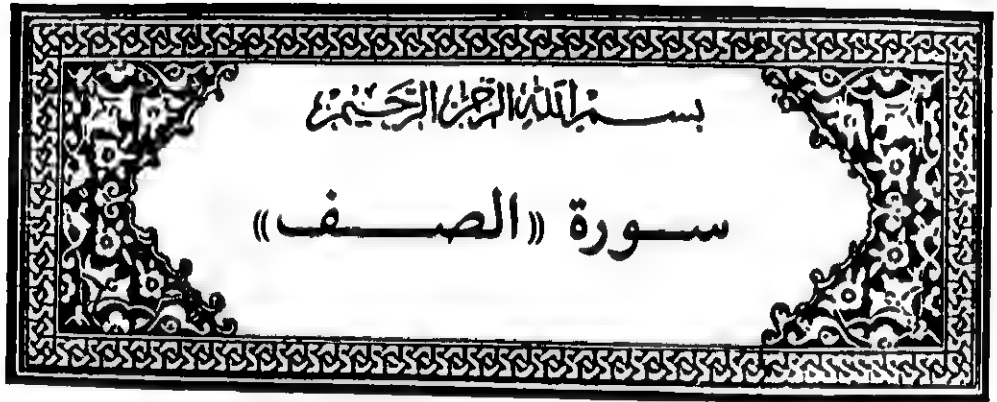 بسم الله الرحمن الرحيم
سورة «الصف»